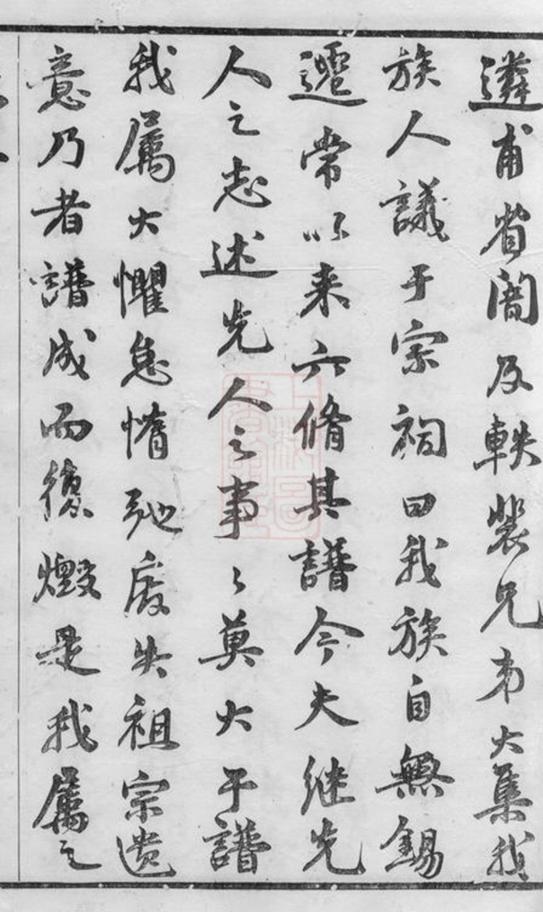 遴甫省闇及軼裴兄弟大集我
族人議于宗祠曰我族自無錫
遷常以来六脩其譜今夫继先
人之志述先人之事〻莫大于譜
我屬大懼怠惰弛廢失祖宗遗
意乃者譜成而復燬是我屬之